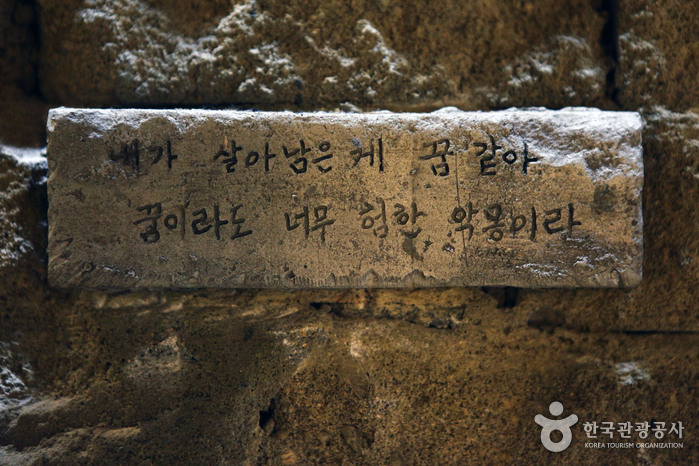 내가 살아남은 게 꿈 같아
꿈이라도 너무 험한 악몽이라
한국관광공사
KOREA TOURISM ORGANIZATION